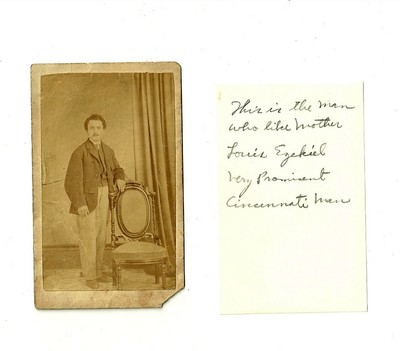 This is the man
who like Mother
Louis Ezekiel
Very Prominent
Cincinnati Man